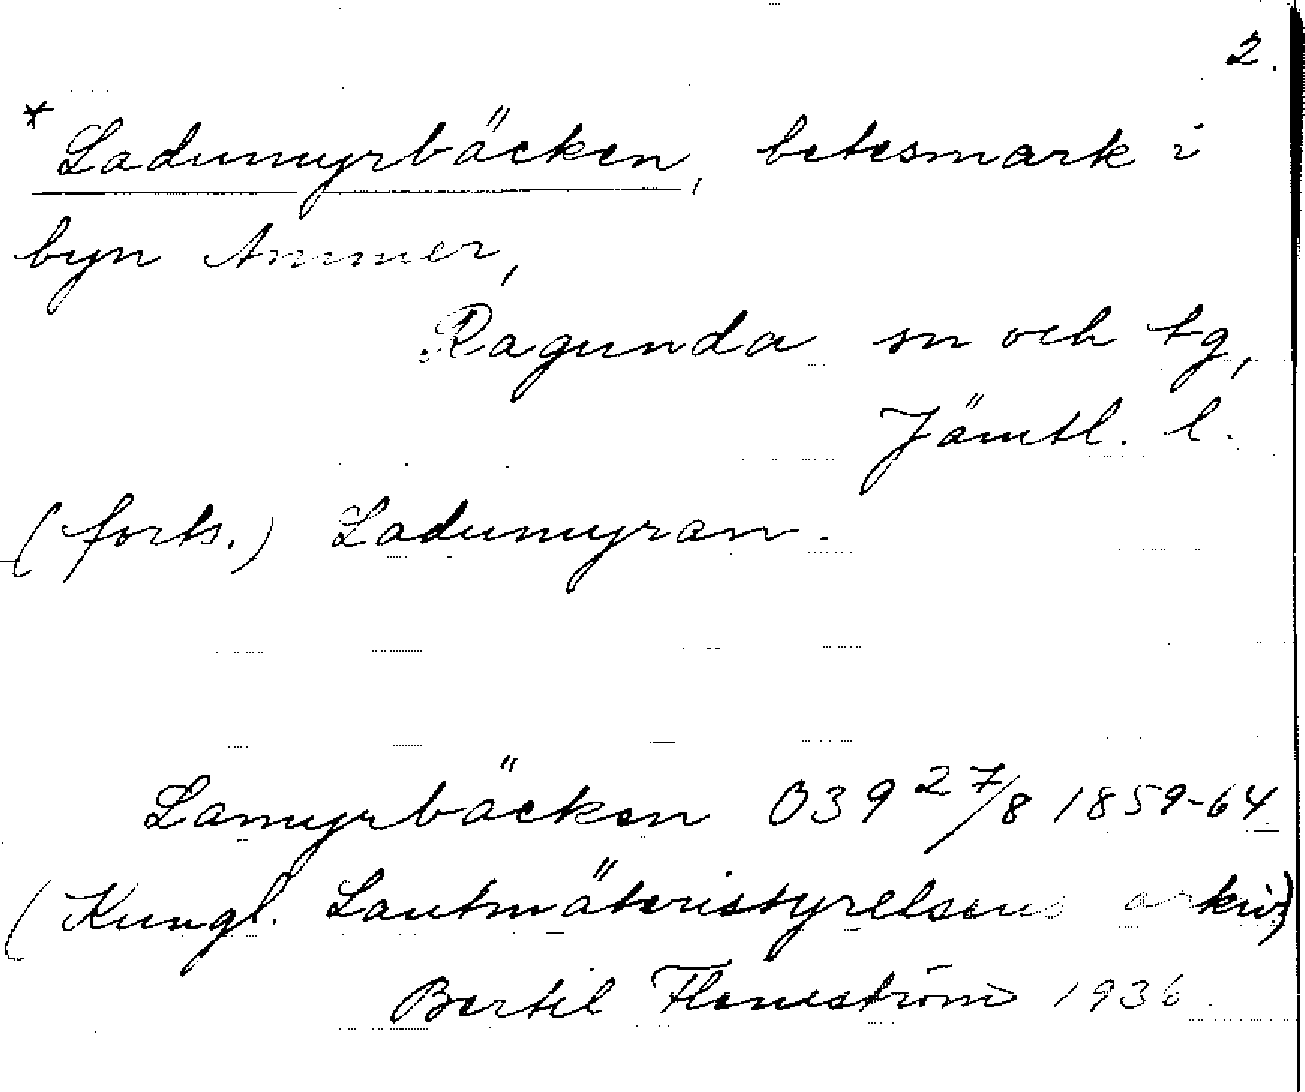 2.
* Ladumyrbäcken, betesmark i
byn Ammer,
Ragunda sn och tg,
Jämtl. l.
(forts.) Ladumyran.
Lamyrbäcken 039 27/8 1859-64
(Kungl. Lantmäteristyrelsens arkiv)
Bertil Flemström 1936.